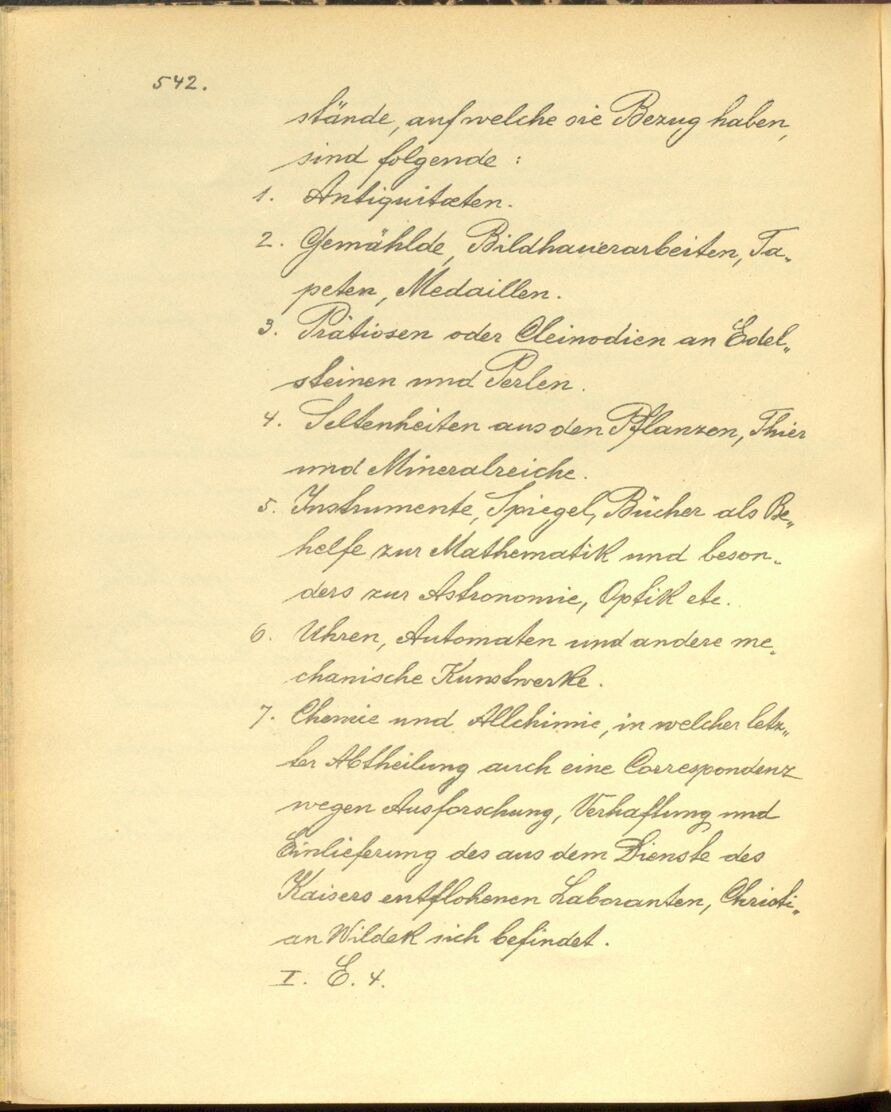 542.
stände, auf welche sie Bezug haben,
sind folgende :
1. Antiquitæten.
2. Gemählde, Bildhauerarbeiten, Ta„
peten, Medaillen.
3. Prätiosen oder Cleinodien an Edel„
steinen und Perlen.
4. Seltenheiten aus den Pflanzen, Thier
und Mineralreiche.
5. Instrumente, Spiegel, Bücher als Be„
helfe zur Mathematik und beson„
ders zur Astronomie, Optik etc.
6. Uhren, Automaten und andere me„
chanische Kunstwerke.
7. Chemie und Allchimie, in welcher letz„
ter Abtheilung auch eine Correspondenz
wegen Ausforschung, Verhaftung und
Einlieferung des aus dem Dienste des
Kaisers entflohenen Laboranten, Christi„
an Wildek sich befindet.
I. E. 4.